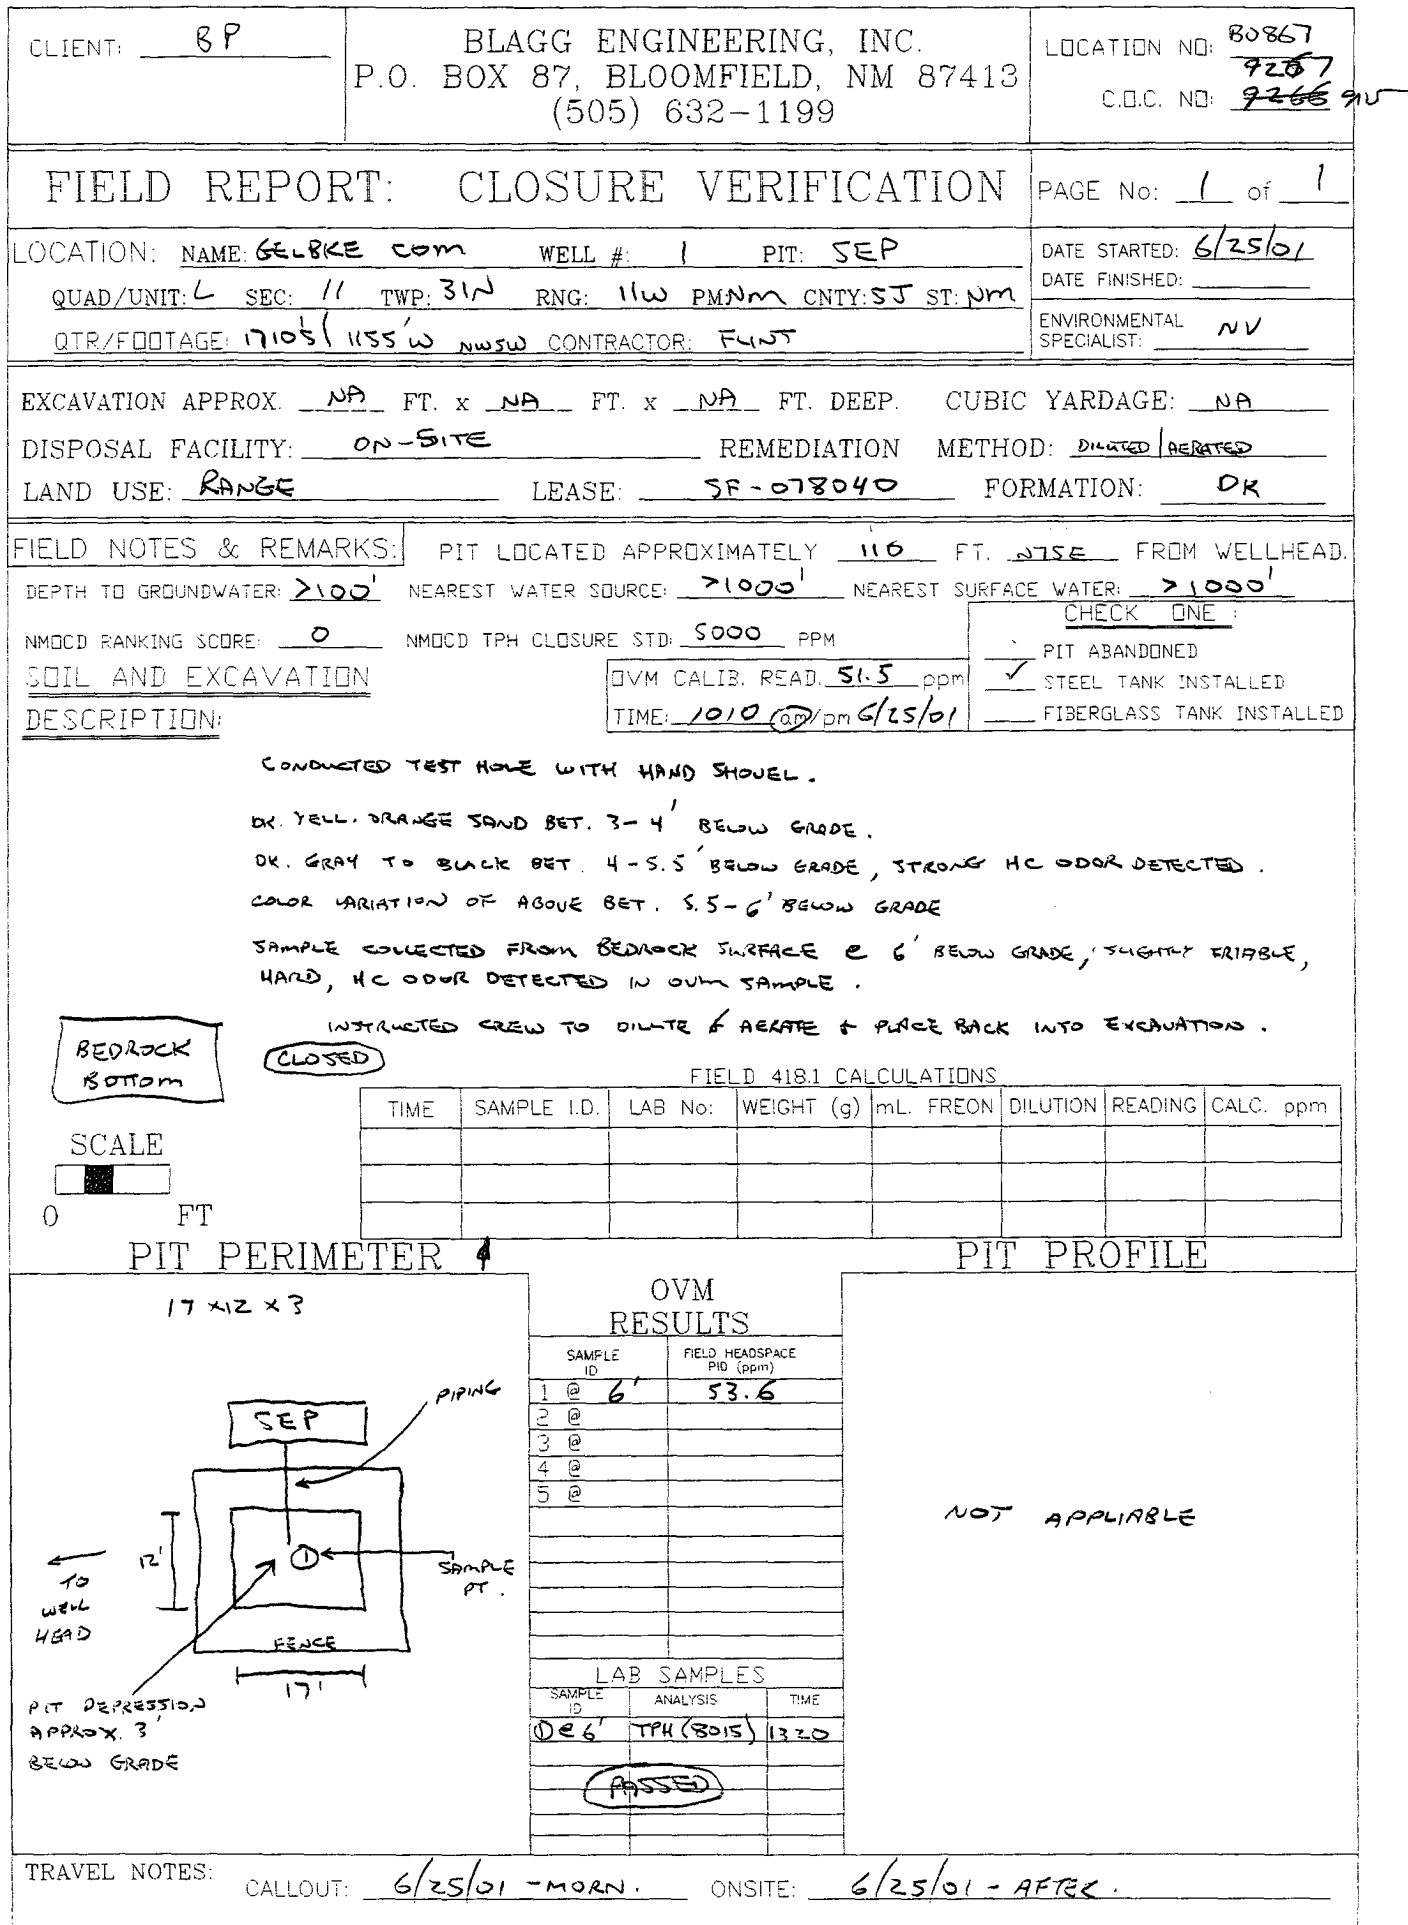 CLIENT: BP
BLAGG ENGINEERING, INC.
P.O. BOX 87, BLOOMFIELD, NM 87413
(505) 632-1199
LOCATION NO: B0867
9267
C.O.C. NO: 9266
FIELD REPORT: CLOSURE VERIFICATION
PAGE No: 1 of 1
LOCATION: NAME: GELBKE COM WELL #: 1 PIT: SEP
QUAD/UNIT: L SEC: 11 TWP: 31N RNG: 11W PM: NM CNTY: SJ ST: NM
QTR/FOOTAGE: 1710'S/1155'W NWSW CONTRACTOR: FLINT
DATE STARTED: 6/25/01
DATE FINISHED:
ENVIRONMENTAL
SPECIALIST: NV
EXCAVATION APPROX. NA FT. x NA FT. x NA FT. DEEP. CUBIC YARDAGE: NA
DISPOSAL FACILITY: ON-SITE REMEDIATION METHOD: DILUTED/AERATED
LAND USE: RANGE LEASE: SF-078040 FORMATION: DK
FIELD NOTES & REMARKS: PIT LOCATED APPROXIMATELY 116 FT. N75E FROM WELLHEAD.
DEPTH TO GROUNDWATER: >100' NEAREST WATER SOURCE: >1000' NEAREST SURFACE WATER: >1000'
NMOCD RANKING SCORE: 0 NMOCD TPH CLOSURE STD: 5000 PPM
CHECK ONE:
PIT ABANDONED
✓ STEEL TANK INSTALLED
FIBERGLASS TANK INSTALLED
SOIL AND EXCAVATION
DESCRIPTION:
OVM CALIB. READ. 51.5 ppm
TIME: 1010 am/pm 6/25/01
CONDUCTED TEST HOLE WITH HAND SHOVEL.
DK. YELL. ORANGE SAND BET. 3-4' BELOW GRADE.
DK. GRAY TO BLACK BET. 4-5.5' BELOW GRADE, STRONG HC ODOR DETECTED.
COLOR VARIATION OF ABOVE BET. 5.5-6' BELOW GRADE
SAMPLE COLLECTED FROM BEDROCK SURFACE @ 6' BELOW GRADE, SLIGHTLY FRIABLE,
HARD, HC ODOR DETECTED IN OVM SAMPLE.
INSTRUCTED CREW TO DILUTE & AERATE & PLACE BACK INTO EXCAVATION.
BEDROCK
BOTTOM
CLOSED
FIELD 418.1 CALCULATIONS
TIME SAMPLE I.D. LAB No: WEIGHT (g) mL. FREON DILUTION READING CALC. ppm
SCALE
0 FT
PIT PERIMETER
PIT PROFILE
17 x 12 x 3
PIPING
SEP
12'
1
SAMPLE
PT.
TO
WELL
HEAD
FENCE
17'
PIT DEPRESSION
APPROX. 3'
BELOW GRADE
OVM
RESULTS
SAMPLE
ID
FIELD HEADSPACE
PID (ppm)
1 @ 6' 53.6
2 @
3 @
4 @
5 @
LAB SAMPLES
SAMPLE
ID
ANALYSIS
TIME
① @ 6' TPH (8015) 1320
PASSED
NOT APPLIABLE
TRAVEL NOTES: CALLOUT: 6/25/01 - MORN. ONSITE: 6/25/01 - AFTER.